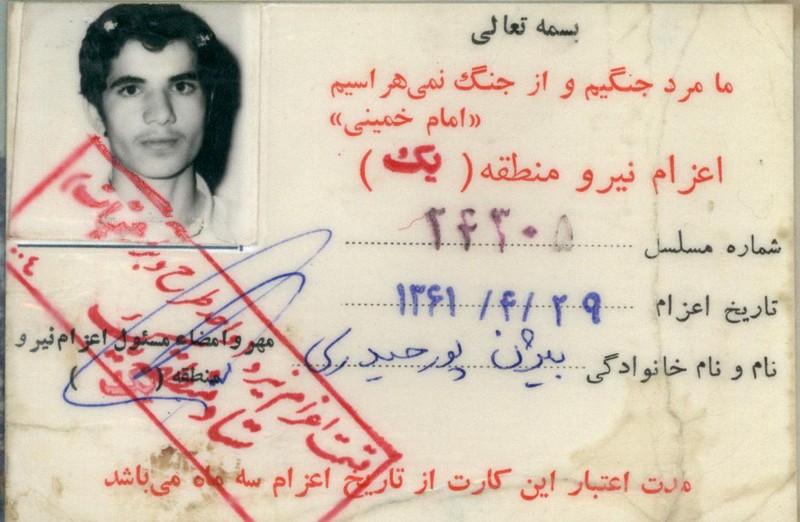 بسمه تعالی
ما مرد جنگیم و از جنگ نمی‌هراسیم
«امام خمینی»
اعزام نیرو منطقه ( یک )
شماره مسلسل ۲۴۳۰۵
تاریخ اعزام ۱۳۶۱/۴/۲۹
نام و نام خانوادگی بیژن پورحیدری
مهر و امضاء مسئول اعزام نیرو
منطقه ( یک )
مدت اعتبار این کارت از تاریخ اعزام سه ماه می‌باشد